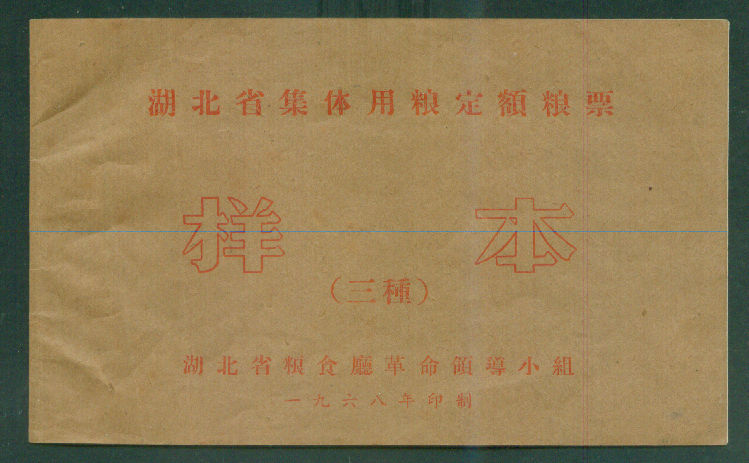 湖北省集体用粮定额粮票
样本
（三種）
湖北省粮食廳革命領導小組
一九六八年印制